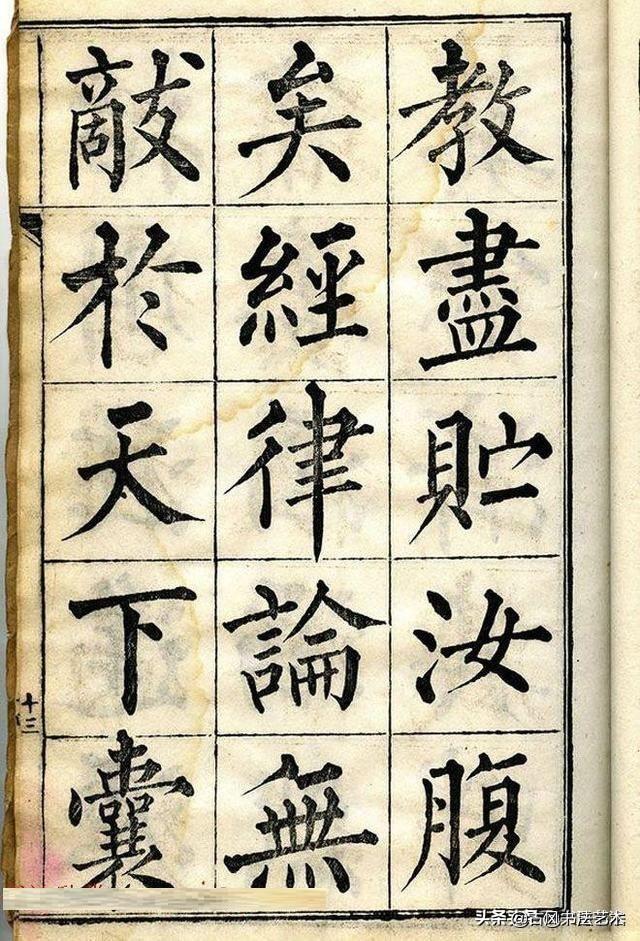 教盡貯汝腹
矣經律論無
敵於天下囊
十三
头条 @古风书法艺术